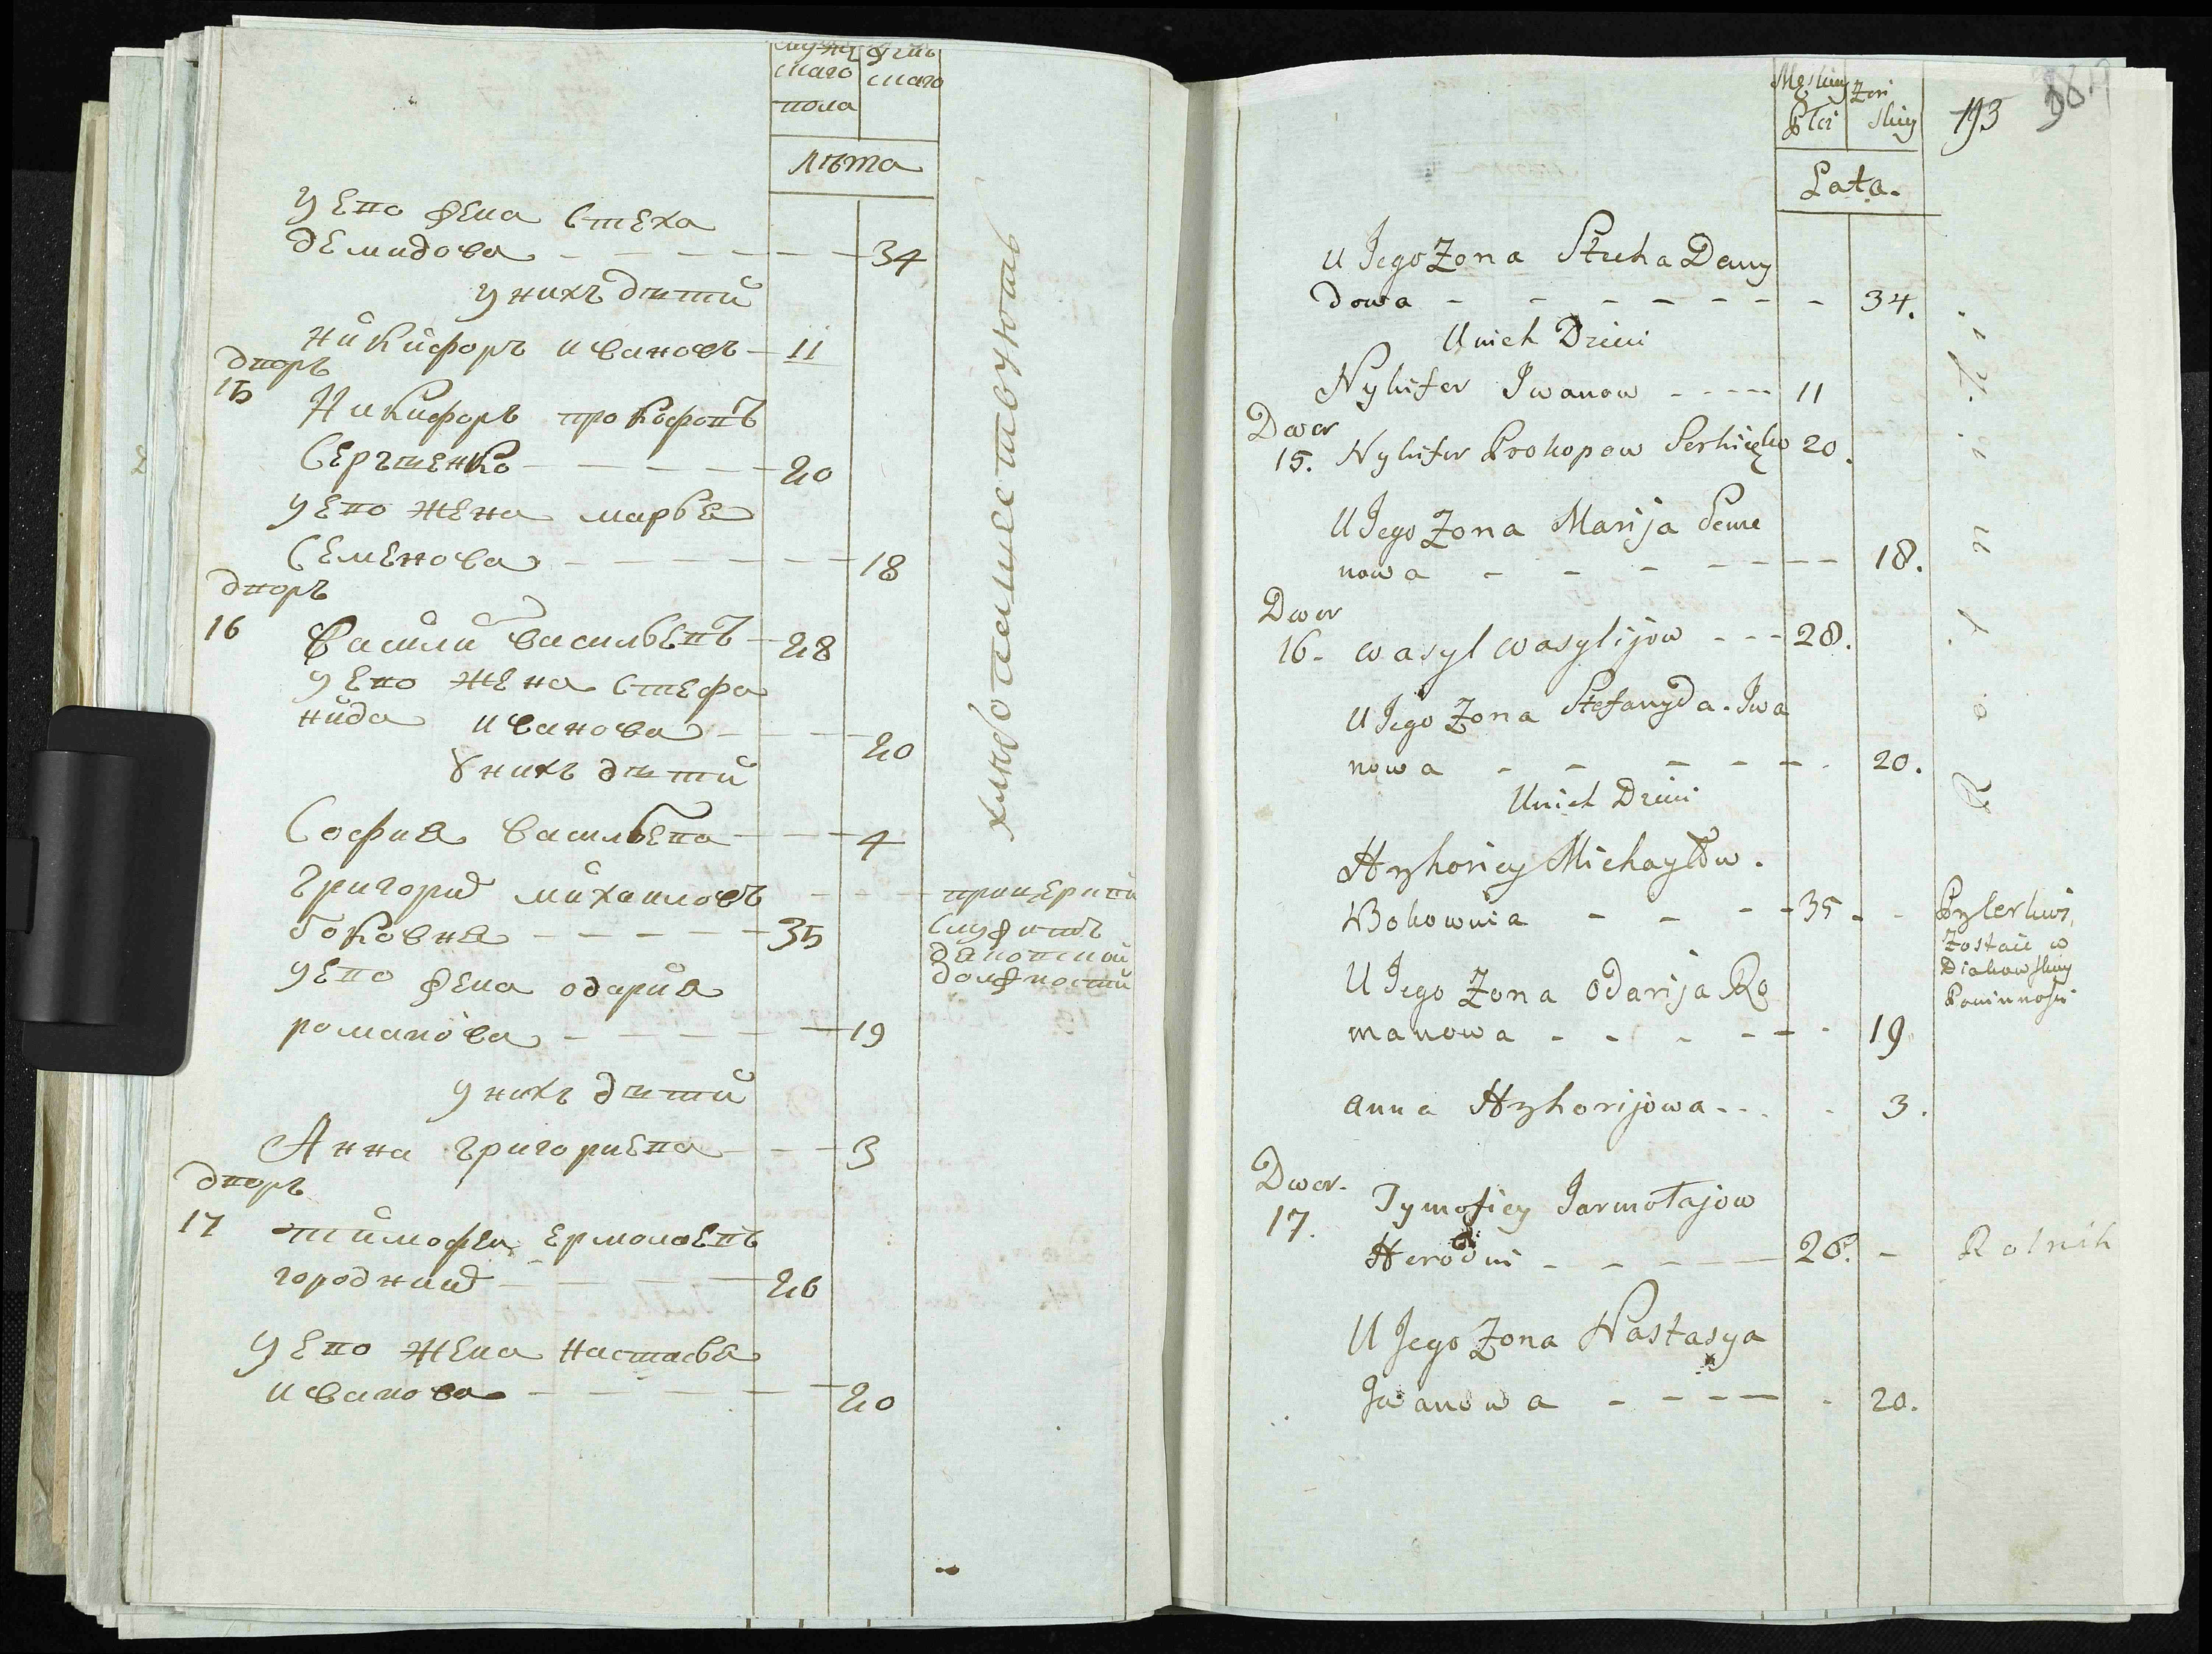 мужe женъ
скаго скаго
пола
лѣта
у его жена Стеха
демидова 34
у нихъ дѣти
никифоръ ивановъ 11
дворъ
15
Никифоръ прокофовъ
Сергіенко 20
у его жена марья
Семенова 18
дворъ
16
Василй васильевъ 28
у его жена Стефа
нида иванова 20
у нихъ дѣти
София васильева 4
григорий михаиловъ
боковня 35
при церкви
служитъ
дяковской
должности
у его жена одария
романова 19
у нихъ дѣти
Анна григориева 3
дворъ
17
тимофеи ермолаевъ
городний 26
у его жена настасья
иванова 20
хлѣбопашествуютъ
193
Męskiey Żeń
Płci skiey
Lata.
U Jego Zona Stecha Demy
dowa 34.
U nich Dzieci
Nykifor Iwanow 11
Dwor
15. Nykifor Prokopow Serhieńko 20.
U Jego Zona Marija Seme
nowa 18.
Dwor
16. Wasyl Wasylijow 28.
U Jego Zona Stefanyda Iwa
nowa 20.
U nich Dzieci
Hryhoriey Michayłow.
Bokownia 35
Przy Cerkwi,
Zostaie w
Diakowskiey
Powinnosci
U Jego Zona Odarija Ro
manowa 19
Anna Hryhorijowa 3.
Dwor.
17. Tymofiey Jarmołajow
Herodni 26. Rolnik
U Jego Zona Nastasya
Iwanowa 20.
Rolniki